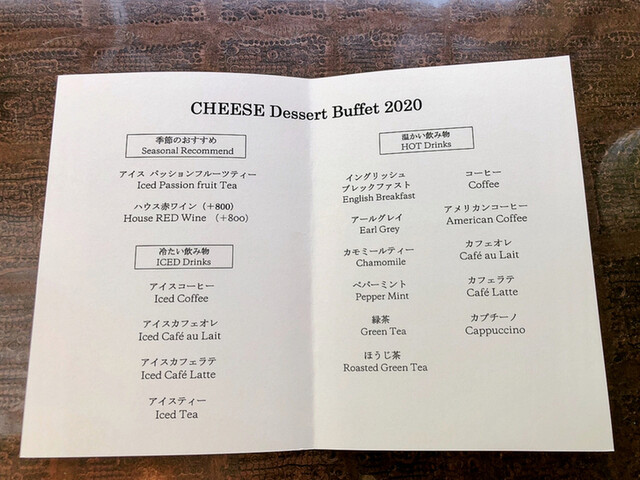 CHEESE Dessert Buffet 2020
季節のおすすめ
Seasonal Recommend
アイス パッションフルーツティー
Iced Passion fruit Tea
ハウス赤ワイン（＋800）
House RED Wine （＋800）
冷たい飲み物
ICED Drinks
アイスコーヒー
Iced Coffee
アイスカフェオレ
Iced Café au Lait
アイスカフェラテ
Iced Café Latte
アイスティー
Iced Tea
温かい飲み物
HOT Drinks
イングリッシュ
ブレックファスト
English Breakfast
アールグレイ
Earl Grey
カモミールティー
Chamomile
ペパーミント
Pepper Mint
緑茶
Green Tea
ほうじ茶
Roasted Green Tea
コーヒー
Coffee
アメリカンコーヒー
American Coffee
カフェオレ
Café au Lait
カフェラテ
Café Latte
カプチーノ
Cappuccino